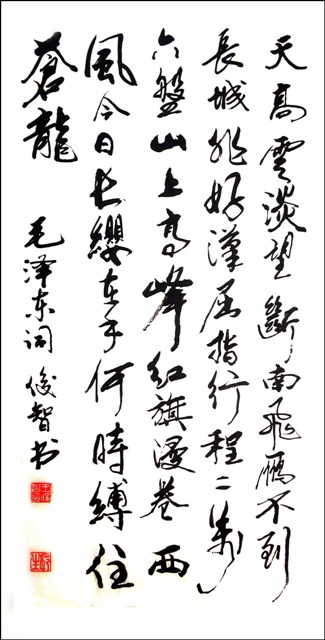 天高雲淡望斷南飛雁不到
長城非好漢屈指行程二萬
六盤山上高峰紅旗漫卷西
風今日长纓在手何時縛住
蒼龍
毛泽东词 俊智书